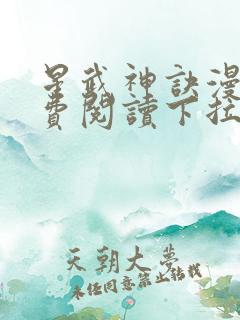 星武神訣漫
費閱讀下拉
天朝大夢
未經同意禁止轉載